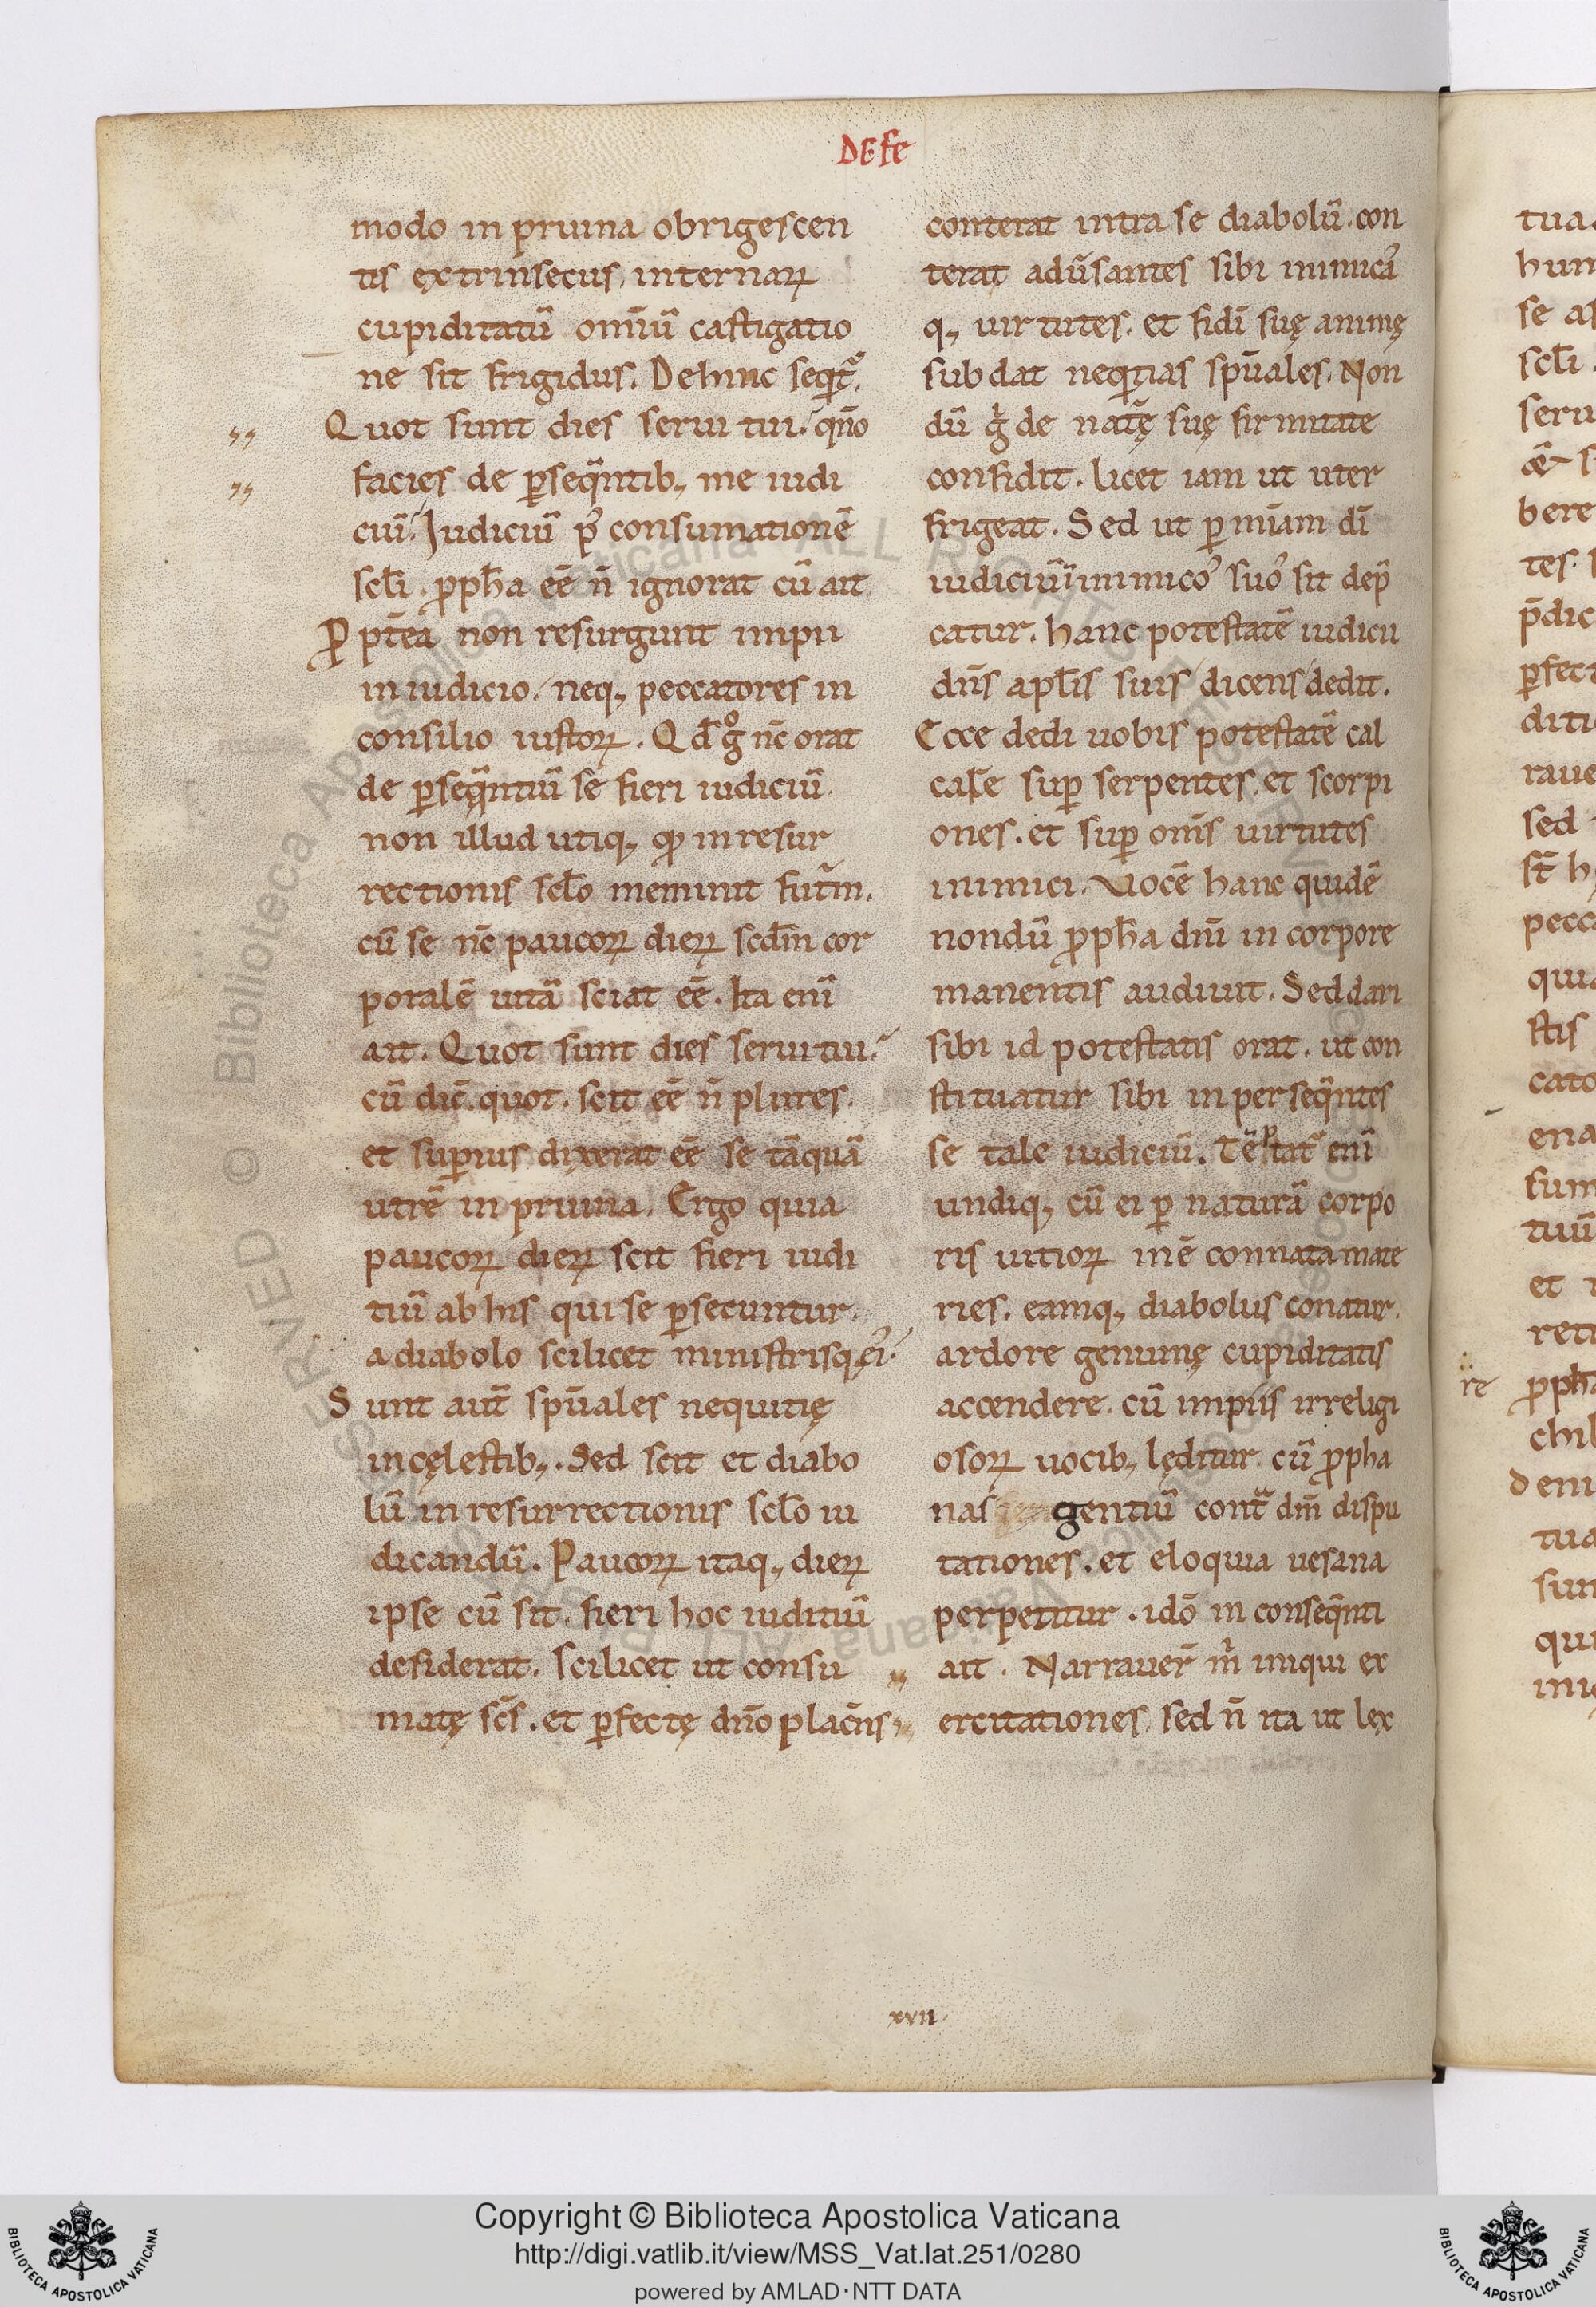 DE fe
modo in pruina obrigescen
tis extrinsecus, internaꝝ
cupiditatū omīū castigatio
ne sit frigidus. Dehinc seqͥtᷓ.
Quot sunt dies serui tui. qn̄o
facies de ꝑseqͣntib; me iudi
ciū. Iudiciū p̉ consumationē
scl̄i. ꝓph̄a eē n̄ ignorat cū ait
Ꝓpt̄ea non resurgunt impii
in iudicio. neq; peccatores in
consilio iustoꝝ. Qd̄ gͦ nc̄ orat
de ꝑseqͣntiū se fieri iudiciū.
non illud utiq; qđ in resur
rectionis scl̄o meminit futᷓm.
cū se nc̄ paucoꝝ dieꝝ scd̄m cor
poralē uitā sciat eē. Ita enī
ait. Quot sunt dies serui tui.
cū dic̄. quot. scit eē n̄ plures.
et suꝑius dixerat eē se tāquā
utrē in pruina. Ergo quia
paucoꝝ dieꝝ scit fieri iudi
tiū ab his qui se ꝑsecuntur.
a diabolo scilicet ministrisq; ei.
Sunt autē spūales nequitię
in cęlestib;. Sed scit et diabo
lū in resurrectionis scl̄o iu
dicandū. Paucoꝝ itaq; dieꝝ
ipse cū sit. fieri hoc iuditiū
desiderat. scilicet ut consu
matę sc̄s. et ꝑfectę dn̄o plac̄ns
conterat intra se diabolū. con
terat adūsantes sibi inimicā
q; uirtutes. et fidī suę animę
subdat neqͥtias spūales. Non
dū gͥ de natᷓę suę firmitate
confidit. licet iam ut uter
frigeat. Sed ut ꝑ mīam dī
iudiciū inimicoꝰ suoꝰ sit dep̄
catur. hanc potestatē iudicii
dn̄s apl̄is suis dicens dedit.
Ecce dedi uobis potestatē cal
care suꝑ serpentes. et scorpi
ones. et suꝑ om̄s uirtutes
inimici. Vocē hanc quidē
nondū ꝓph̄a dn̄i in corpore
manentis audiuit. Sed dari
sibi id potestatis orat. ut con
stituatur sibi in perseqͣntes
se tale iudiciū. Tēptatᷓ enī
undiq; cū ei ꝑ naturā corpo
ris uitioꝝ inē connata mate
ries. eamq; diabolus conatur.
ardore genuinę cupiditatis
accendere. cū impiis irreligi
osoꝝ uocib; lęditur. cū ꝓpha
nas gentiū contᷓ dm̄ dispu
tationes. et eloquia uesana
perpetitur. idō in conseqͣnti
ait. Narrauer̄ m̄ iniqui ex
ercitationes, sed n̄ ita ut lex
xvii
re
Copyright © Biblioteca Apostolica Vaticana
http://digi.vatlib.it/view/MSS_Vat.lat.251/0280
powered by AMLAD·NTT DATA